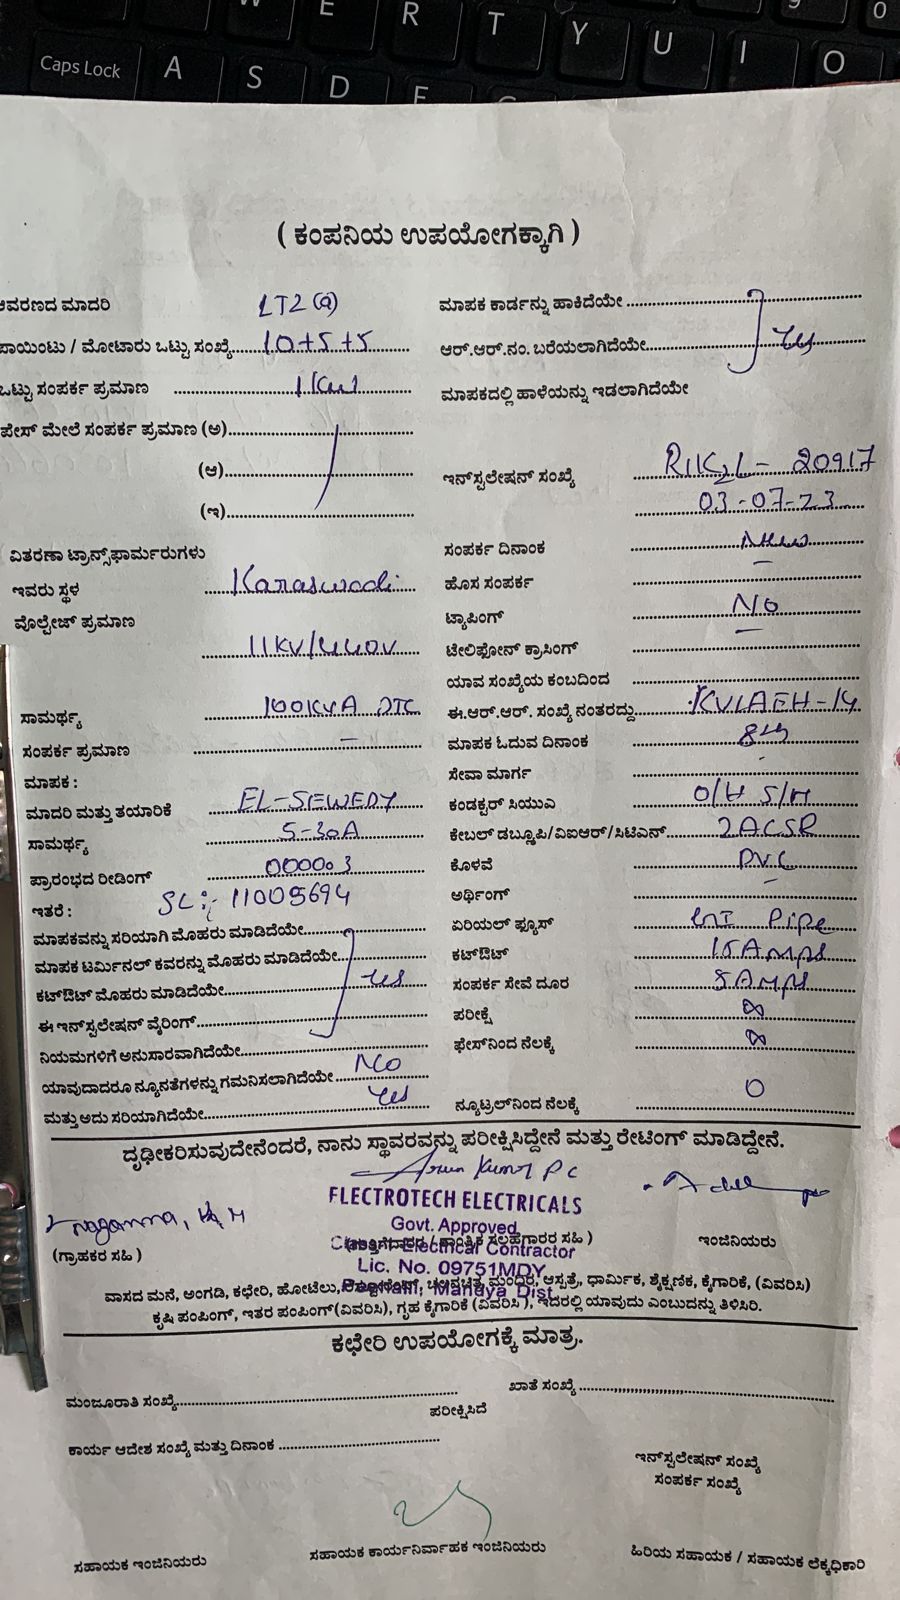 Caps Lock A S D F
E R T Y U I O
( ಕಂಪನಿಯ ಉಪಯೋಗಕ್ಕಾಗಿ )
ಆವರಣದ ಮಾದರಿ LT2(a)
ಪಾಯಿಂಟು / ಮೋಟಾರು ಒಟ್ಟು ಸಂಖ್ಯೆ 10+5+5
ಒಟ್ಟು ಸಂಪರ್ಕ ಪ್ರಮಾಣ 1KW
ಪೇಸ್ ಮೇಲೆ ಸಂಪರ್ಕ ಪ್ರಮಾಣ (ಅ)
(ಆ)
(ಇ)
ವಿತರಣಾ ಟ್ರಾನ್ಸ್‌ಫಾರ್ಮರುಗಳು
ಇವರು ಸ್ಥಳ Karaswadi
ವೊಲ್ಟೇಜ್ ಪ್ರಮಾಣ
11KV/440V
ಸಾಮರ್ಥ್ಯ 100KVA DTC
ಸಂಪರ್ಕ ಪ್ರಮಾಣ –
ಮಾಪಕ :
ಮಾದರಿ ಮತ್ತು ತಯಾರಿಕೆ EL-SEWEDY
ಸಾಮರ್ಥ್ಯ 5-30A
ಪ್ರಾರಂಭದ ರೀಡಿಂಗ್ 000003
ಇತರೆ : SL:- 11005694
ಮಾಪಕವನ್ನು ಸರಿಯಾಗಿ ಮೊಹರು ಮಾಡಿದೆಯೇ
ಮಾಪಕ ಟರ್ಮಿನಲ್ ಕವರನ್ನು ಮೊಹರು ಮಾಡಿದೆಯೇ
ಕಟ್‌ಔಟ್ ಮೊಹರು ಮಾಡಿದೆಯೇ Yes
ಈ ಇನ್‌ಸ್ಟಲೇಷನ್ ವೈರಿಂಗ್
ನಿಯಮಗಳಿಗೆ ಅನುಸಾರವಾಗಿದೆಯೇ
ಯಾವುದಾದರೂ ನ್ಯೂನತೆಗಳನ್ನು ಗಮನಿಸಲಾಗಿದೆಯೇ No
ಮತ್ತು ಅದು ಸರಿಯಾಗಿದೆಯೇ Yes
ಮಾಪಕ ಕಾರ್ಡನ್ನು ಹಾಕಿದೆಯೇ
ಆರ್.ಆರ್.ನಂ. ಬರೆಯಲಾಗಿದೆಯೇ Yes
ಮಾಪಕದಲ್ಲಿ ಹಾಳೆಯನ್ನು ಇಡಲಾಗಿದೆಯೇ
ಇನ್‌ಸ್ಟಲೇಷನ್ ಸಂಖ್ಯೆ 20917
03-07-23
ಸಂಪರ್ಕ ದಿನಾಂಕ
ಹೊಸ ಸಂಪರ್ಕ –
ಟ್ಯಾಪಿಂಗ್ No
ಟೆಲಿಫೋನ್ ಕ್ರಾಸಿಂಗ್ –
ಯಾವ ಸಂಖ್ಯೆಯ ಕಂಬದಿಂದ
ಈ.ಆರ್.ಆರ್. ಸಂಖ್ಯೆ ನಂತರದ್ದು KVLAEH-14
ಮಾಪಕ ಓದುವ ದಿನಾಂಕ 8th
ಸೇವಾ ಮಾರ್ಗ
ಕಂಡಕ್ಟರ್ ಸಿಯುಎ O/H S/M
ಕೇಬಲ್ ಡಬ್ಲ್ಯೂಪಿ/ವಿಐಆರ್/ಸಿಟಿಎಸ್ 2ACSR
ಕೊಳವೆ PVC
ಅರ್ಥಿಂಗ್ –
ಏರಿಯಲ್ ಫ್ಯೂಸ್ GI Pipe
ಕಟ್‌ಔಟ್ 15Amps
ಸಂಪರ್ಕ ಸೇವೆ ದೂರ 5Amps
ಪರೀಕ್ಷೆ ∞
ಫೇಸ್‌ನಿಂದ ನೆಲಕ್ಕೆ ∞
ನ್ಯೂಟ್ರಲ್‌ನಿಂದ ನೆಲಕ್ಕೆ 0
ದೃಢೀಕರಿಸುವುದೇನೆಂದರೆ, ನಾನು ಸ್ಥಾವರವನ್ನು ಪರೀಕ್ಷಿಸಿದ್ದೇನೆ ಮತ್ತು ರೇಟಿಂಗ್ ಮಾಡಿದ್ದೇನೆ.
Arun Kumar P C
FLECTROTECH ELECTRICALS
Govt. Approved
Electrical Contractor
Lic. No. 09751MDY
Mandya Dist
(ಗ್ರಾಹಕರ ಸಹಿ )
ಸಲಹೆಗಾರರ ಸಹಿ )
ಇಂಜಿನಿಯರು
ವಾಸದ ಮನೆ, ಅಂಗಡಿ, ಕಛೇರಿ, ಹೋಟೆಲು, ಮಂದಿರ, ಆಸ್ಪತ್ರೆ, ಧಾರ್ಮಿಕ, ಶೈಕ್ಷಣಿಕ, ಕೈಗಾರಿಕೆ, (ವಿವರಿಸಿ)
ಕೃಷಿ ಪಂಪಿಂಗ್, ಇತರ ಪಂಪಿಂಗ್(ವಿವರಿಸಿ), ಗೃಹ ಕೈಗಾರಿಕೆ (ವಿವರಿಸಿ ), ಇದರಲ್ಲಿ ಯಾವುದು ಎಂಬುದನ್ನು ತಿಳಿಸಿರಿ.
ಕಛೇರಿ ಉಪಯೋಗಕ್ಕೆ ಮಾತ್ರ.
ಮಂಜೂರಾತಿ ಸಂಖ್ಯೆ
ಖಾತೆ ಸಂಖ್ಯೆ
ಪರೀಕ್ಷಿಸಿದೆ
ಕಾರ್ಯ ಆದೇಶ ಸಂಖ್ಯೆ ಮತ್ತು ದಿನಾಂಕ
ಇನ್‌ಸ್ಟಲೇಷನ್ ಸಂಖ್ಯೆ
ಸಂಪರ್ಕ ಸಂಖ್ಯೆ
ಸಹಾಯಕ ಇಂಜಿನಿಯರು
ಸಹಾಯಕ ಕಾರ್ಯನಿರ್ವಾಹಕ ಇಂಜಿನಿಯರು
ಹಿರಿಯ ಸಹಾಯಕ / ಸಹಾಯಕ ಲೆಕ್ಕಧಿಕಾರಿ